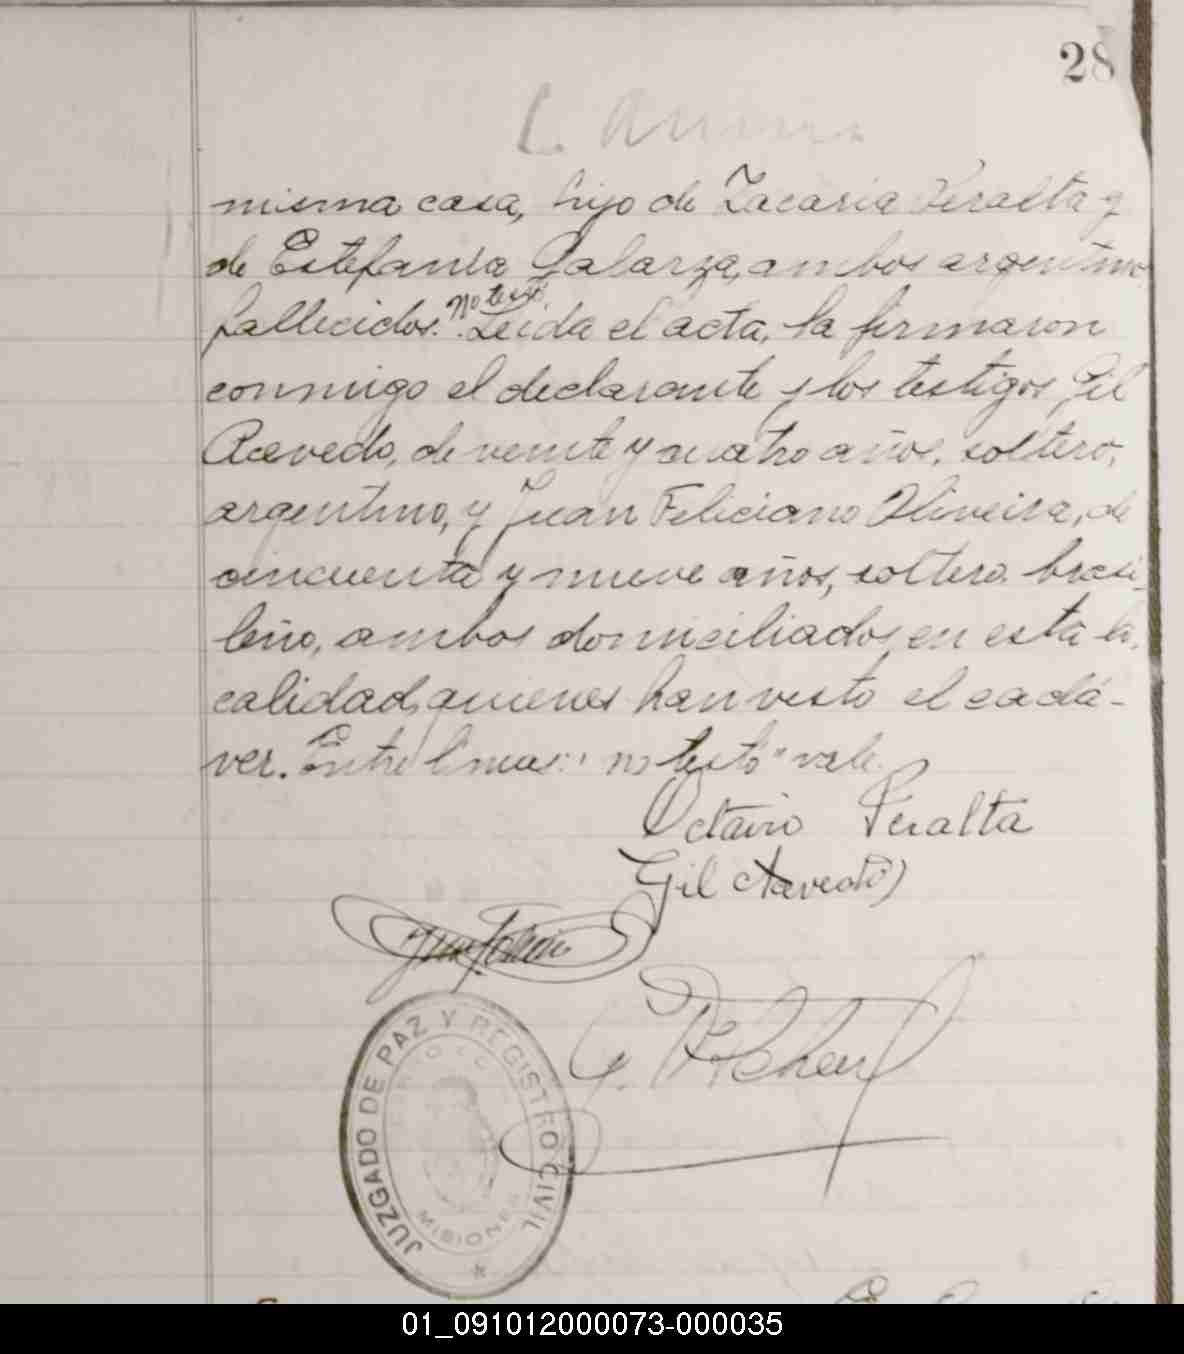 28
misma casa, hijo de Zacaria Peralta y
de Estefania Galarza, ambos argentinos
no testó
fallecidos. Leida el acta, la firmaron
conmigo el declarante y los testigos, Gil
Acevedo, de veinte y cuatro años, soltero,
argentino, y Juan Feliciano Oliveira, de
cincuenta y nueve años, soltero. brasi-
leño, ambos domiciliados en esta lo
calidad, quienes han visto el cadá-
ver. Entre lineas: "no testó" vale.
Octavio Peralta
Gil Acevedo
JUZGADO DE PAZ Y REGISTRO CIVIL
MISIONES
01_091012000073-000035